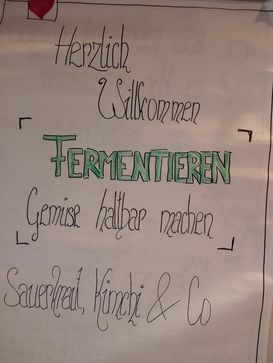 Herzlich
Willkommen
FERMENTIEREN
Gemüse haltbar machen
Sauerkraut, Kimchi & Co